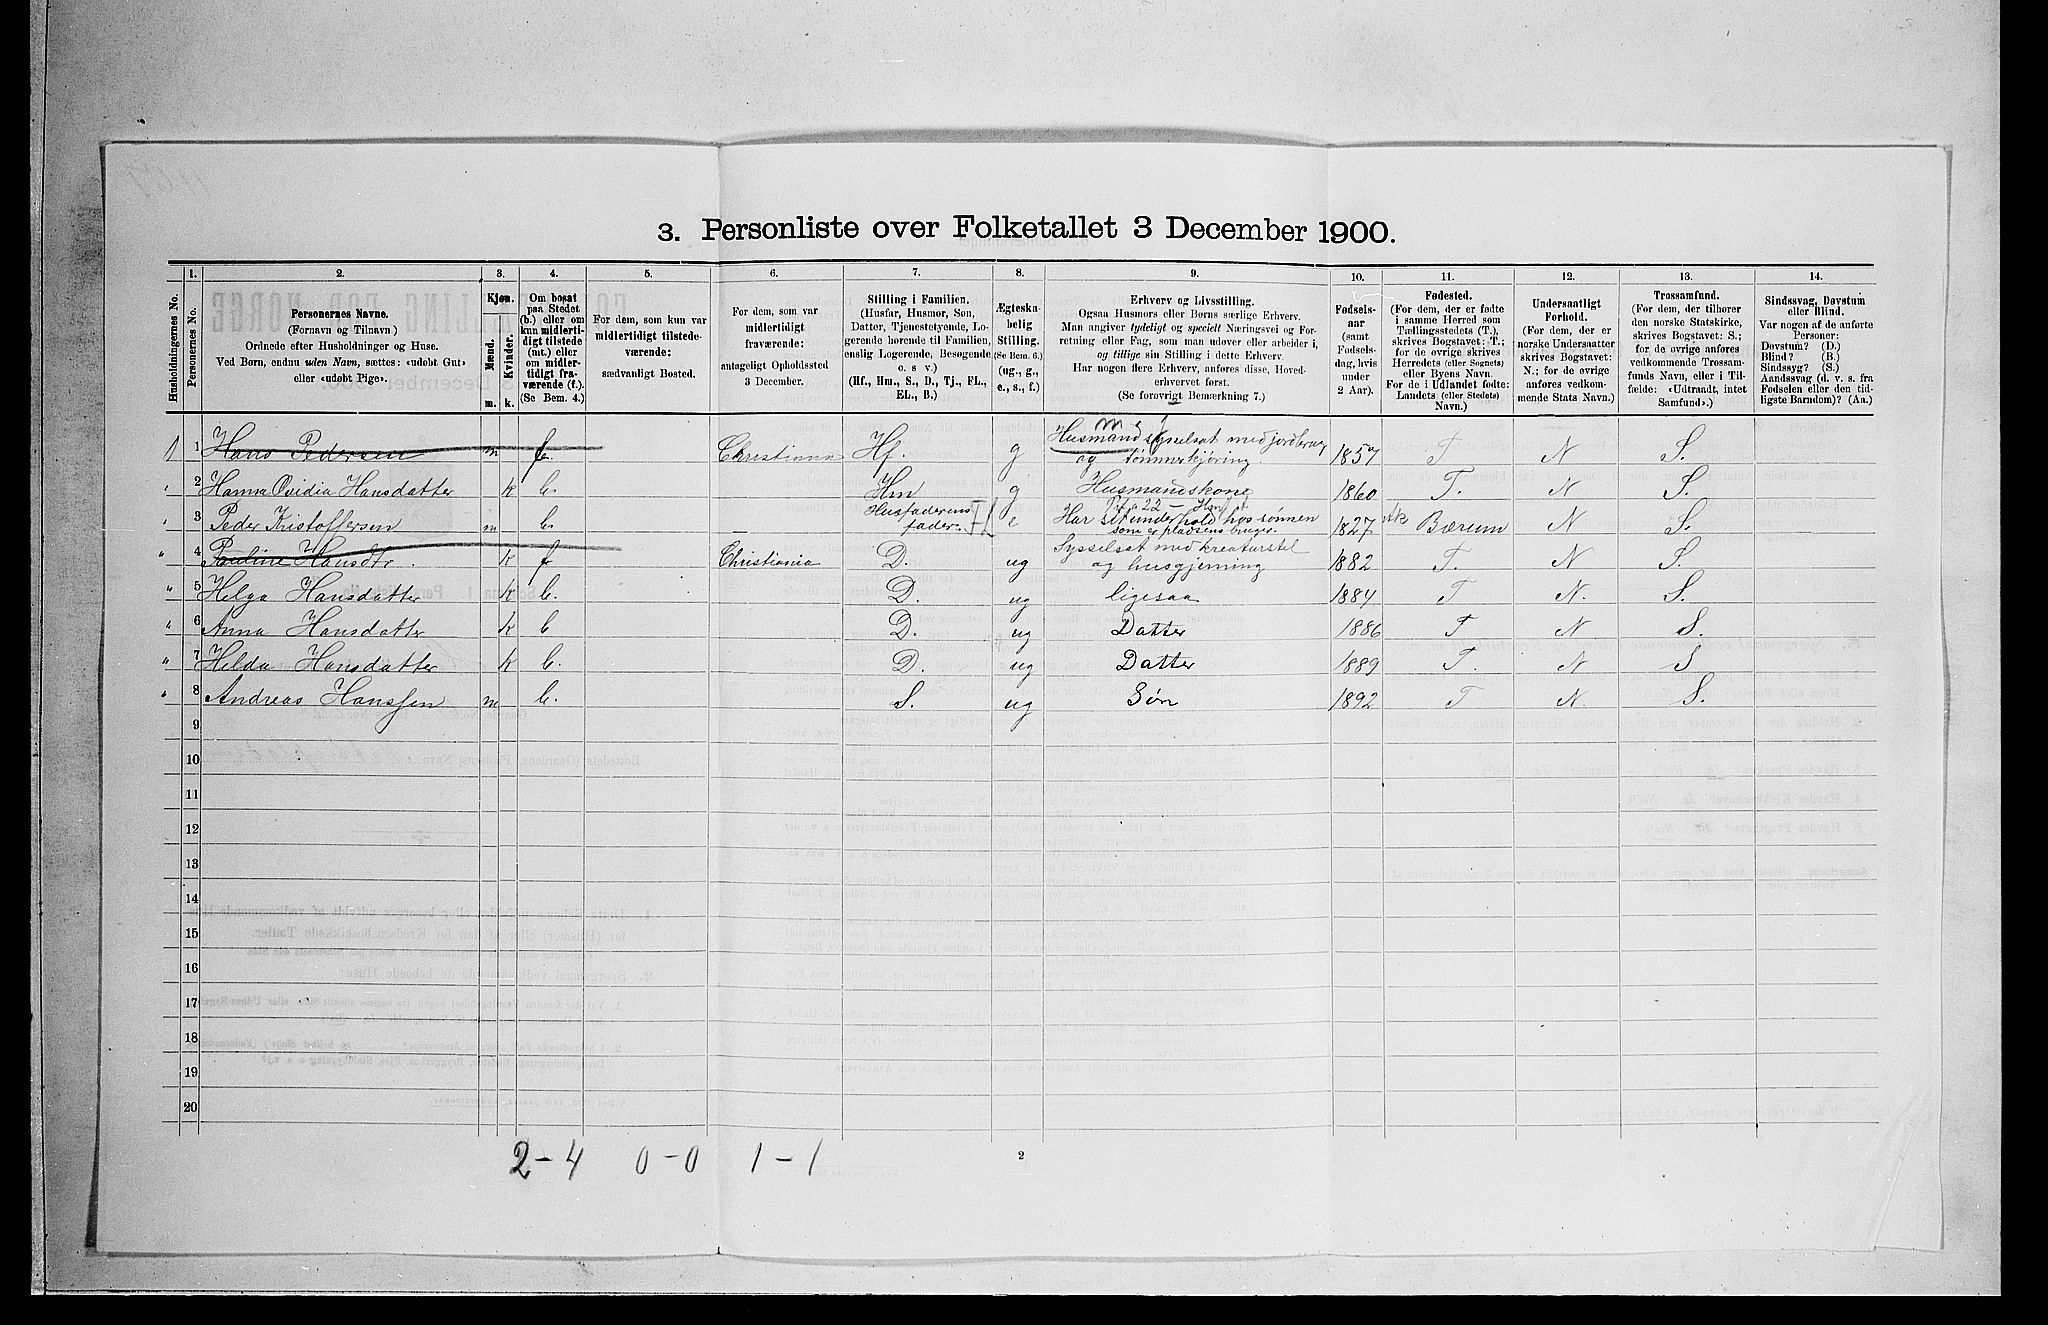 3. Personliste over Folketallet 3 December 1900.
Husholdningernes No.
1. Personernes No.
2. Personernes Navne.
(Fornavn og Tilnavn)
Ordnede efter Husholdninger og Huse.
Ved Børn, endnu uden Navn, sættes: «udøbt Gut»
eller «udøbt Pige».
3. Kjøn.
Mænd. Kvinder.
m. k.
4. Om bosat
paa Stedet
(b.) eller om
kun midlerti-
digt tilstede
(mt.) eller
om midler-
tidigt fra-
værende (f.).
(Se Bem. 4.)
5. For dem, som kun var
midlertidigt tilstede-
værende:
sædvanligt Bosted.
6. For dem, som var
midlertidigt
fraværende:
antageligt Opholdssted
3 December.
7. Stilling i Familien.
(Husfar, Husmor, Søn,
Datter, Tjenestetyende, Lo-
gerende hørende til Familien,
enslig Logerende, Besøgende
o. s. v.)
(Hf., Hm., S., D., Tj., FL.,
EL., B.)
8. Ægteska-
belig
Stilling.
(Se Bem. 6.)
(ug., g.,
e., s., f.)
9. Erhverv og Livsstilling.
Ogsaa Husmors eller Børns særlige Erhverv.
Man angiver tydeligt og specielt Næringsvei og For-
retning eller Fag, som man udover eller arbeider i,
og tillige sin Stilling i dette Erhverv.
Har nogen flere Erhverv, anføres disse, Hoved-
erhvervet først.
(Se forøvrigt Bemærkning 7.)
10. Fødsels-
aar
(samt
Fødsels-
dag, hvis
under
2 Aar).
11. Fødested.
(For dem, der er fødte
i samme Herred som
Tællingsstedets (T.),
skrives Bogstavet: T.;
for de øvrige skrives
Herredets (eller Sognets)
eller Byens Navn.
For de i Udlandet fødte:
Landets (eller Stedets)
Navn.)
12. Undersaatligt
Forhold.
(For dem, der er
norske Undersaatter
skrives Bogstavet:
N.; for de øvrige
anføres vedkom-
mende Stats Navn.)
13. Trossamfund.
(For dem, der tilhører
den norske Statskirke,
skrives Bogstavet: S.;
for de øvrige anføres
vedkommende Trossam-
funds Navn, eller i Til-
fælde: «Udtraadt, intet
Samfund».)
14. Sindssvag, Døvstum
eller Blind.
Var nogen af de anførte
Personer:
Døvstum? (D.)
Blind? (B.)
Sindssyg? (S.)
Aandssvag (d. v. s. fra
Fødselen eller den tid-
ligste Barndom)? (Aa.)
1 1 Hans Pedersen m f. Christiania Hf. g Husmand sysselsat med jordbrug og tømmerkjøring. 1857 T N S.
" 2 Hanna Ovidia Hansdatter k b. Hm g Husmandskone 1860 T. N S.
" 3 Peder Kristoffersen m b. Husfaderens fader. FL e Har sit underhold hos sønnen som er pladsens bruger. 1827 Bærum N S.
" 4 Pauline Hansdtr. k f Christiania D. ug Sysselsat med kreaturstel og husgjerning 1882 T. N S.
" 5 Helga Hansdatter k b. D. ug ligesaa 1884 T N. S.
" 6 Anna Hansdatter k b D. ug Datter 1886 T N. S.
" 7 Helda Hansdatter k b. D. ug Datter 1889 T. N S
" 8 Andreas Hanssen m b. S. ug Søn 1892 T N. S.
9
10
11
12
13
14
15
16
17
18
19
20
2-4 0-0 1-1
2